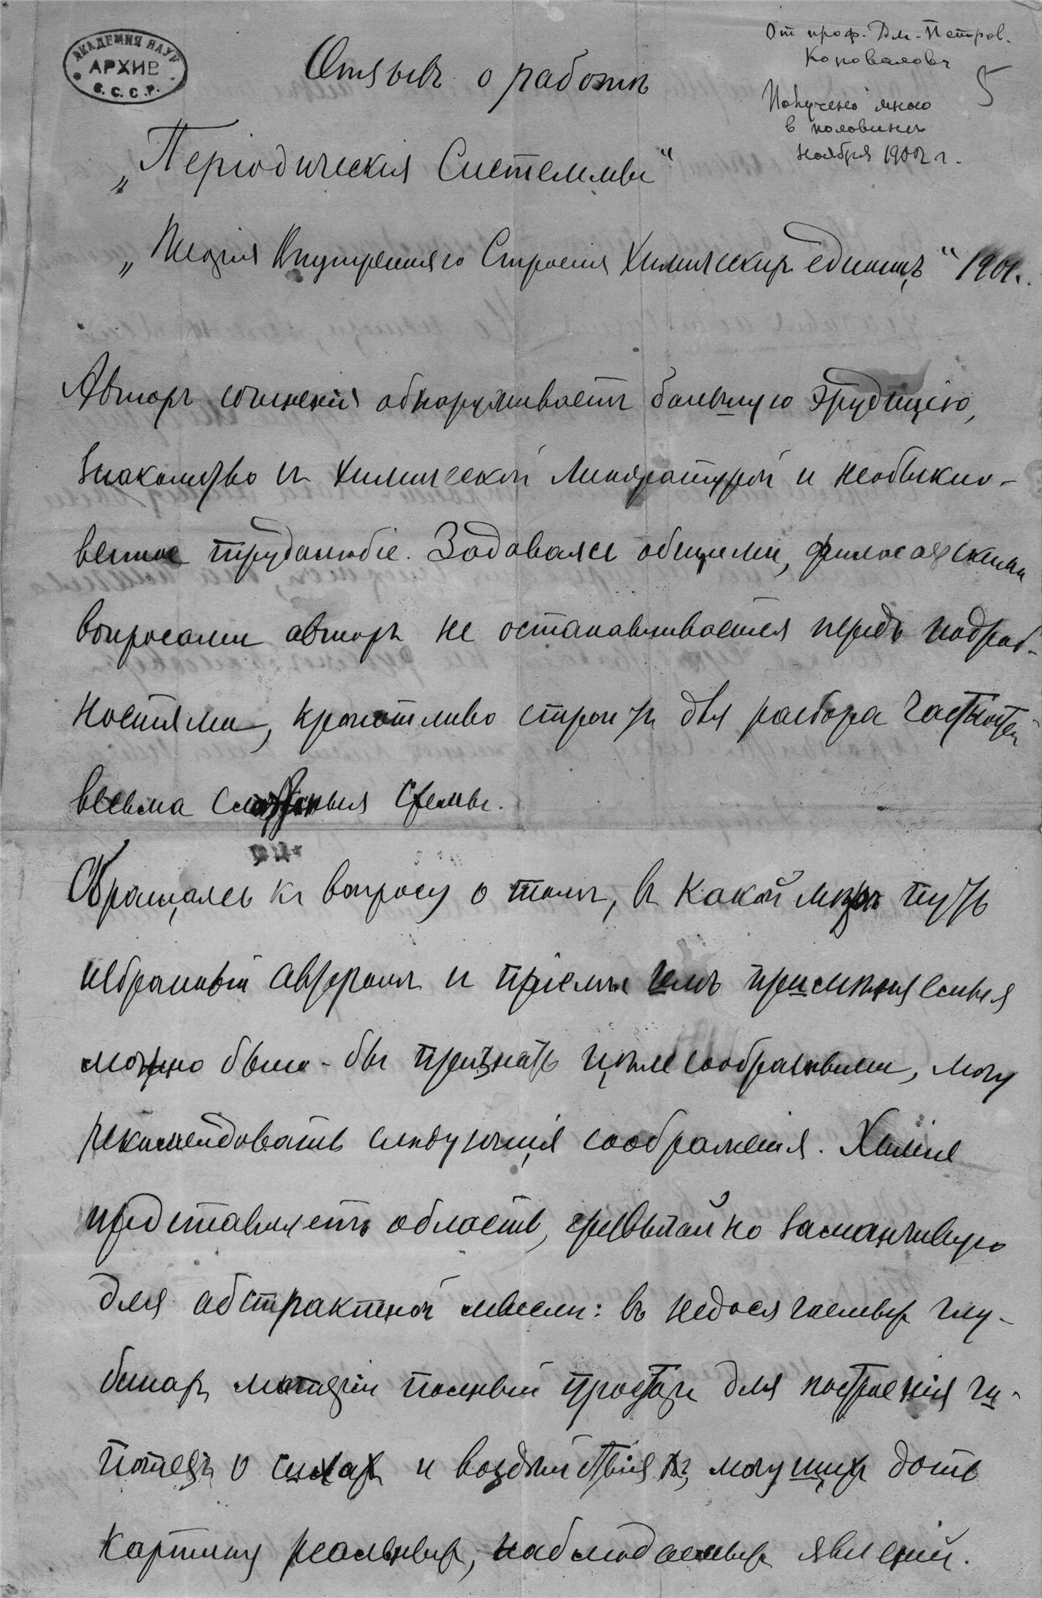 АКАДЕМИЯ НАУК
АРХИВ
С.С.С.Р.
От проф. Дм. Петров.
Коновалова
Получено мною
в половине
ноября 1902 г.
5
Отзывъ о работѣ
„Періодическія Системы"
„Теорія Внутренняго Строенія Химическихъ единицъ" 1901.
Авторъ сочиненія обнаруживаетъ большую эрудицію,
знакомство съ химической литературой и необыкно-
венное трудолюбіе. Задаваясь общими, философскими
вопросами авторъ не останавливается передъ подроб-
ностями, кропотливо строитъ для разбора частностей
весьма сложныя схемы.
Обращаясь къ вопросу о томъ, въ какой мѣрѣ путь
избранный авторомъ и пріемы имъ примѣняемые
можно было-бы признать цѣлесообразными, могу
рекомендовать слѣдующія соображенія. Химія
представляетъ область, чрезвычайно заманчивую
для абстрактной мысли: въ недосягаемыхъ глу-
бинахъ матеріи полный просторъ для построенія ги-
потезъ о силахъ и воздѣйствіяхъ, могущихъ дать
картину реальныхъ, наблюдаемыхъ явленій.